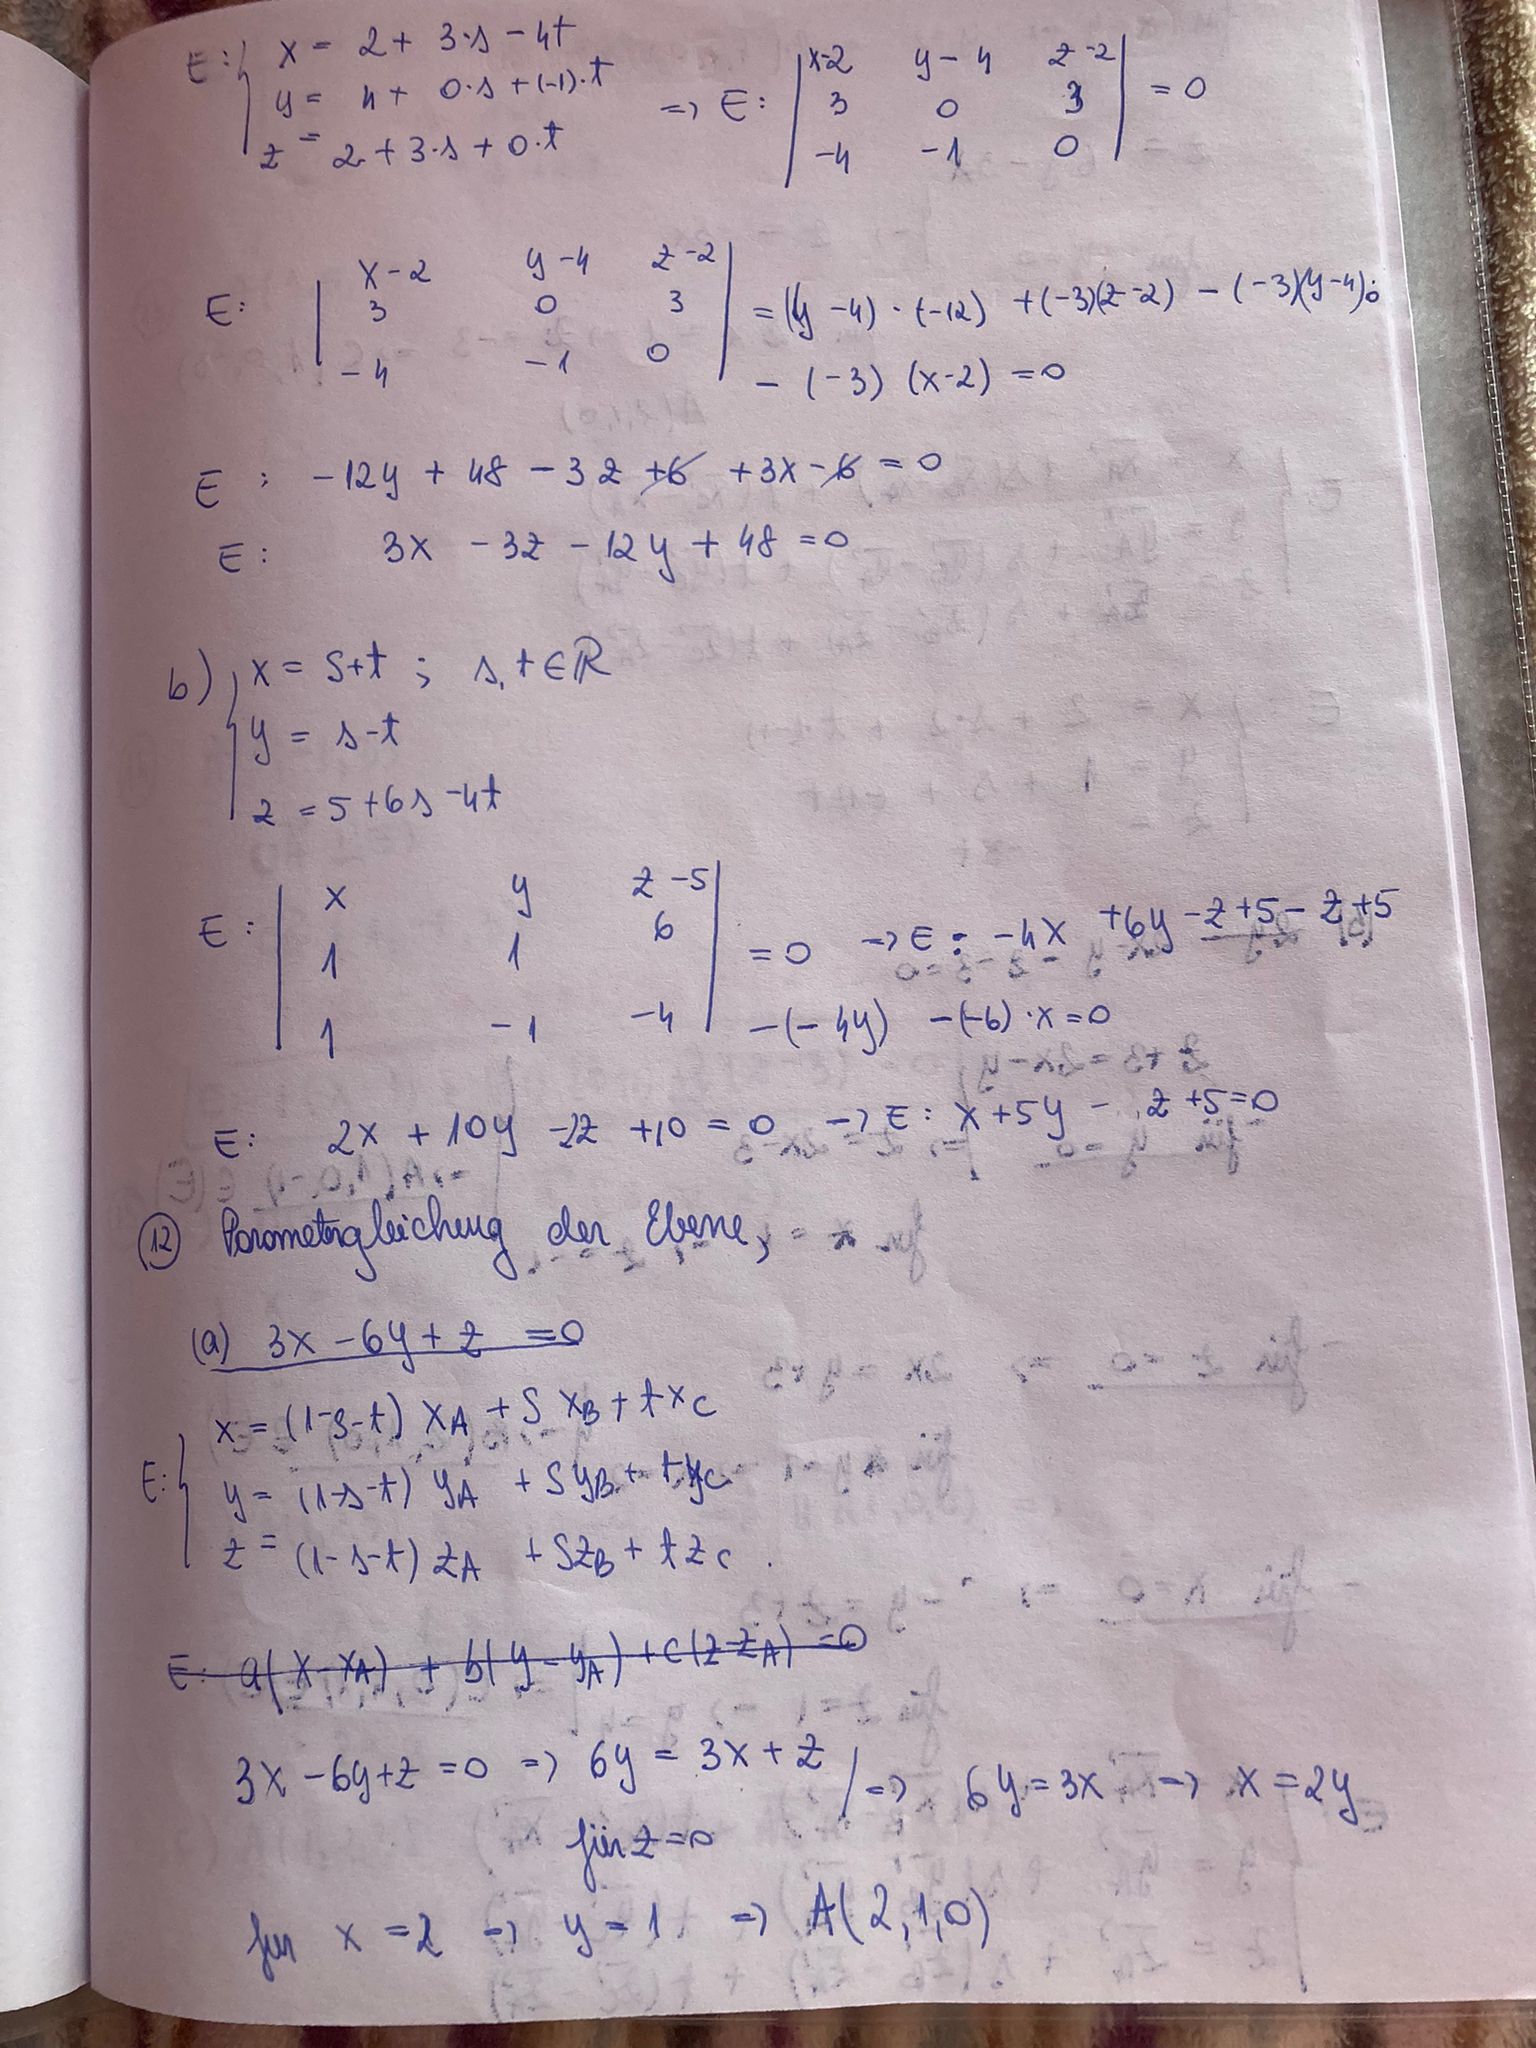 E: { x = 2 + 3·s - 4t
y = 4 + 0·s + (-1)·t => E: | x-2 y-4 z-2 |
z = 2 + 3·s + 0·t | 3 0 3 | = 0
| -4 -1 0 |
E: | x-2 y-4 z-2 |
| 3 0 3 | = (y-4)·(-12) + (-3)(z-2) - (-3)(y-4)·0
| -4 -1 0 | - (-3)(x-2) = 0
E: -12y + 48 - 3z + 6 + 3x - 6 = 0
E: 3x - 3z - 12y + 48 = 0
b) { x = s+t ; s, t ∈ ℝ
y = s-t
z = 5+6s-4t
E: | x y z-5 |
| 1 1 6 | = 0 => E: -4x +6y -z+5-z+5
| 1 -1 -4 | -(-4y) -(-6)·x=0
E: 2x + 10y -2z +10 = 0 -> E: x+5y - z+5=0
(12) Parametergleichung der Ebene,
(a) 3x - 6y + z = 0
E: { x = (1-s-t) xA + s xB + t xC
y = (1-s-t) yA + s yB + t yC
z = (1-s-t) zA + s zB + t zC .
E: a(x-xA) + b(y-yA) + c(z-zA) = 0
3x - 6y + z = 0 => 6y = 3x + z | => 6y = 3x -> x = 2y
für z = 0
für x = 2 -> y = 1 => A(2,1,0)